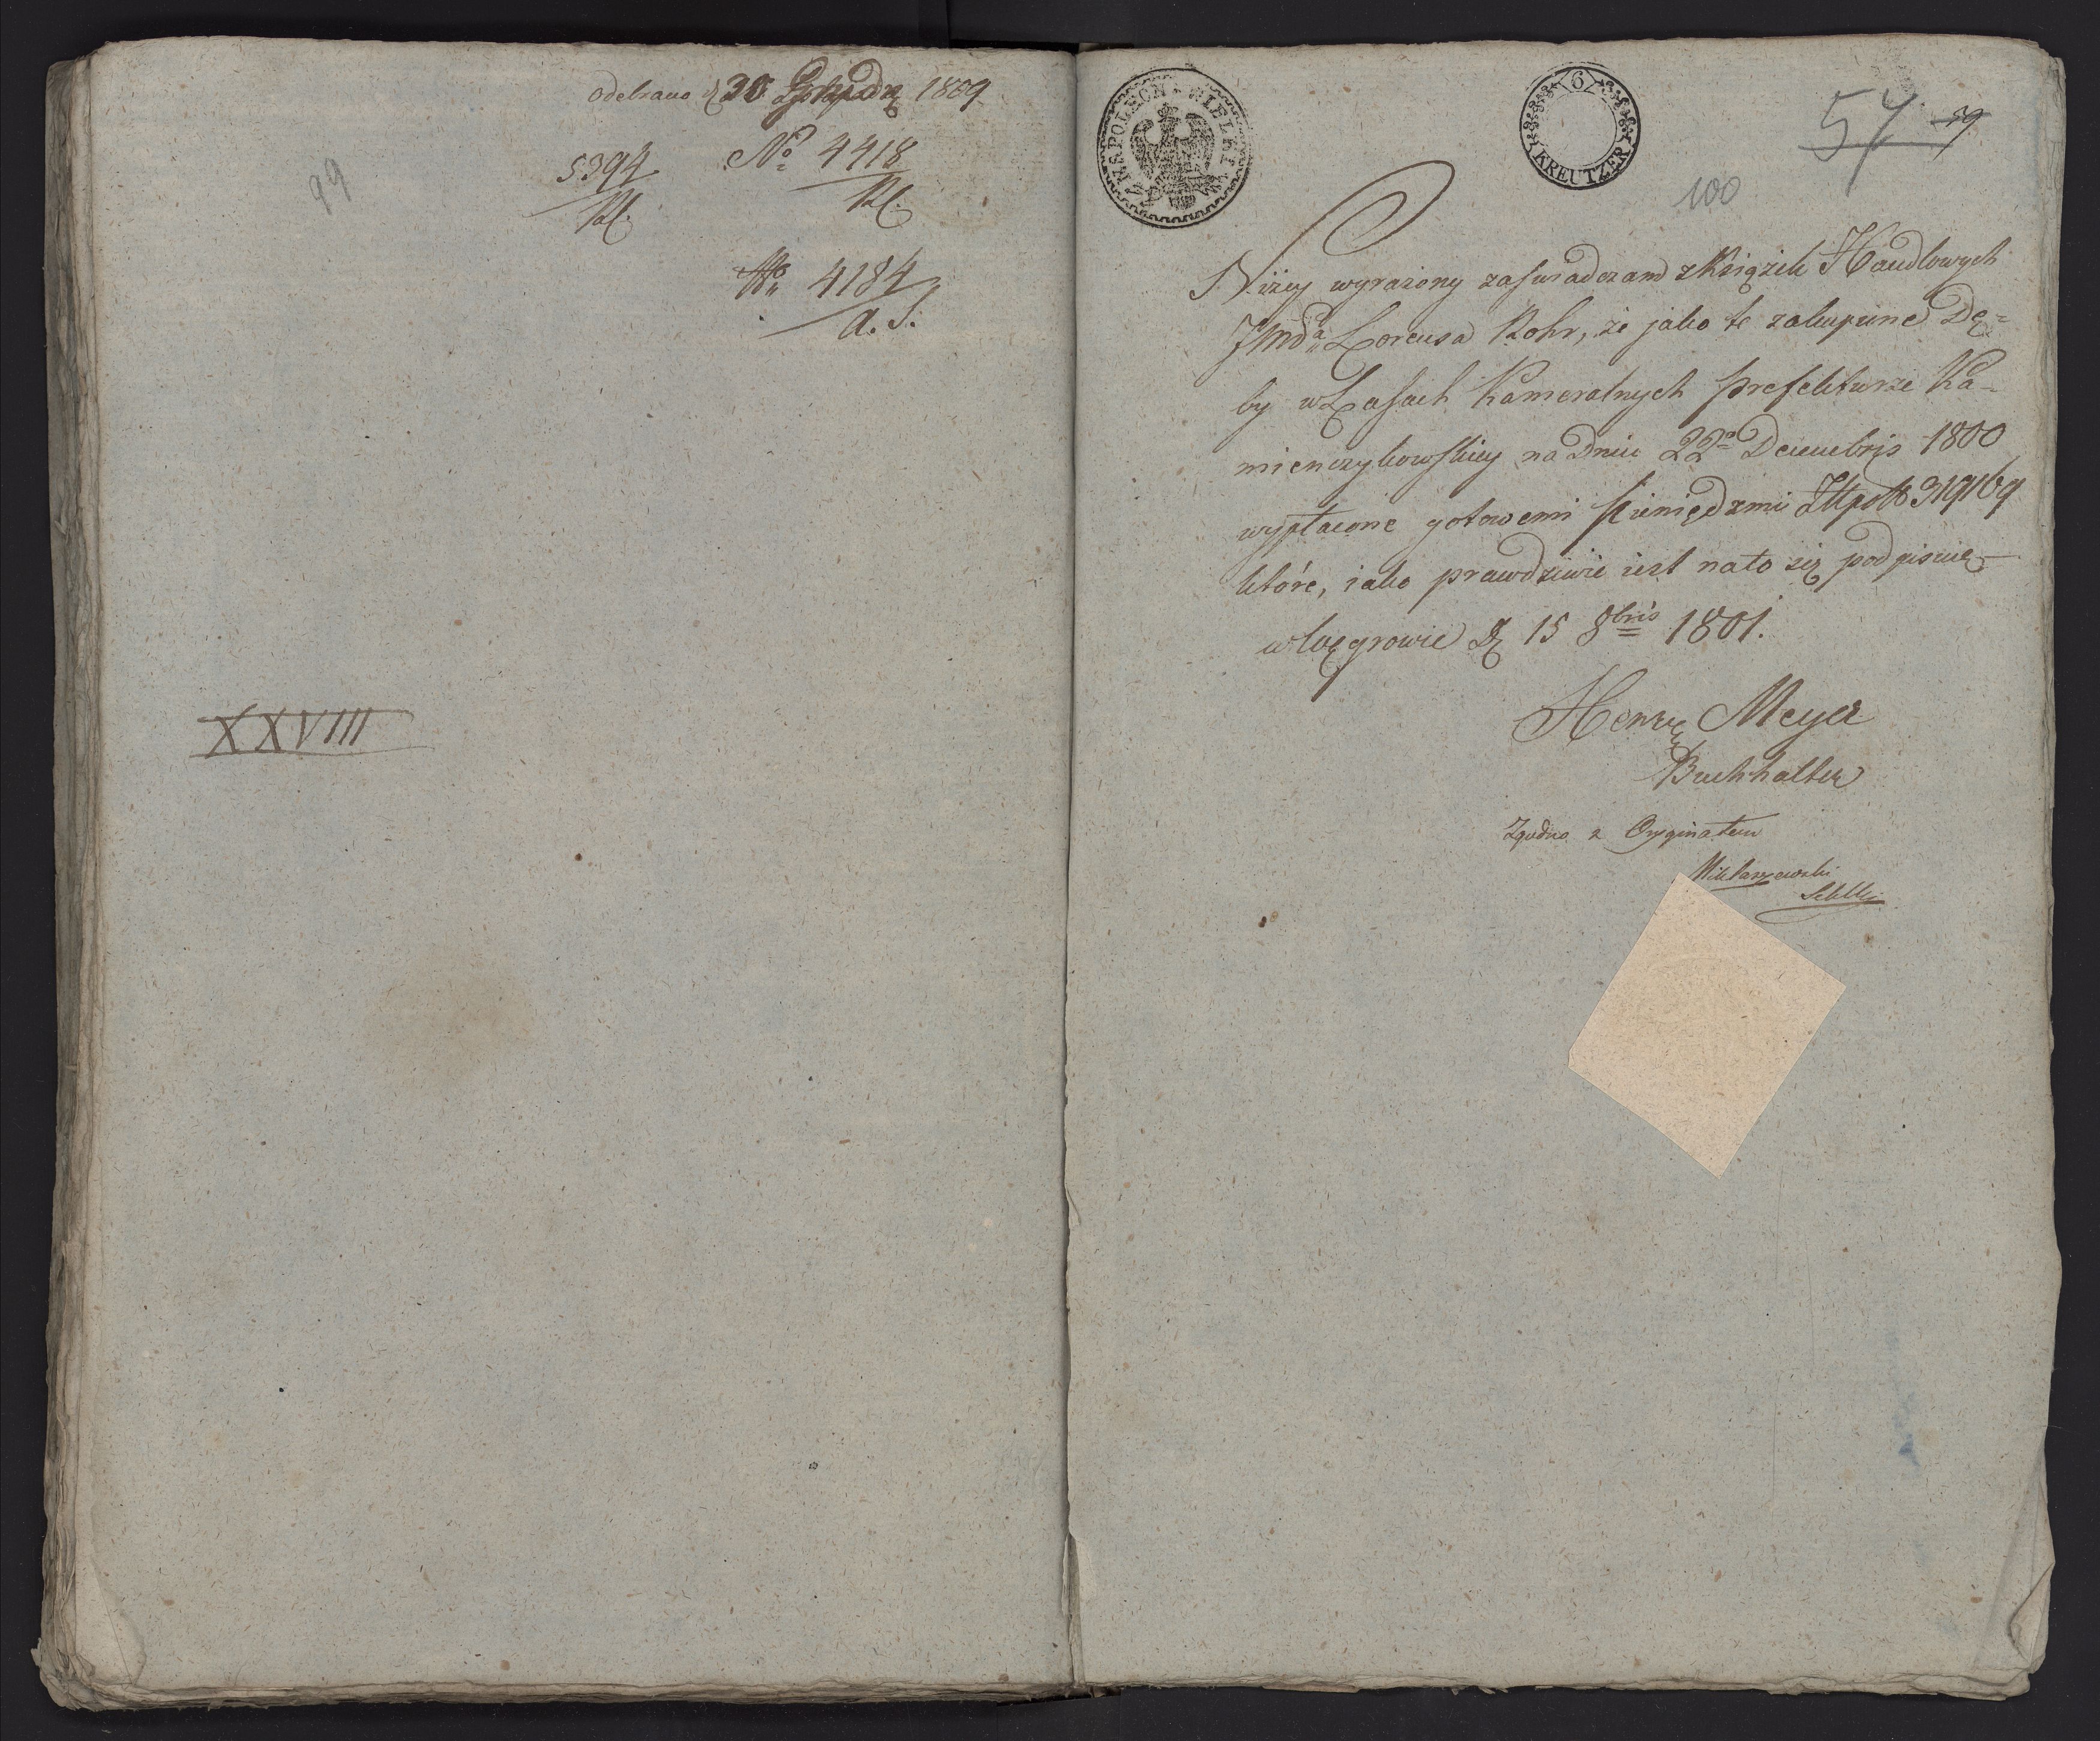 odebrano d 30 Listopada 1809
99
5394
Rl.
No 4418
Rl.
No 4184
a. S.
XXVIII
NAPOLEON WIELKI
6
KREUTZER
54 59
100
Niżey wyrażony zaswiadczam z Księżek Handlowych
JMda Lorensa Rohr, że jako te zakupione Dę=
by w Lasach Kameralnych prefekturze Ka-
mienczykowskiey na Dniu 22o Decembris 1800
wypłacone gotowemi pieniędzmi Złtpols 319169
które, iako prawdziwie iest na to się podpisuię
w Węgrowie D 15 8bris 1801.
Henry Meyer
Buchhalter
Zgodno z Oryginałem